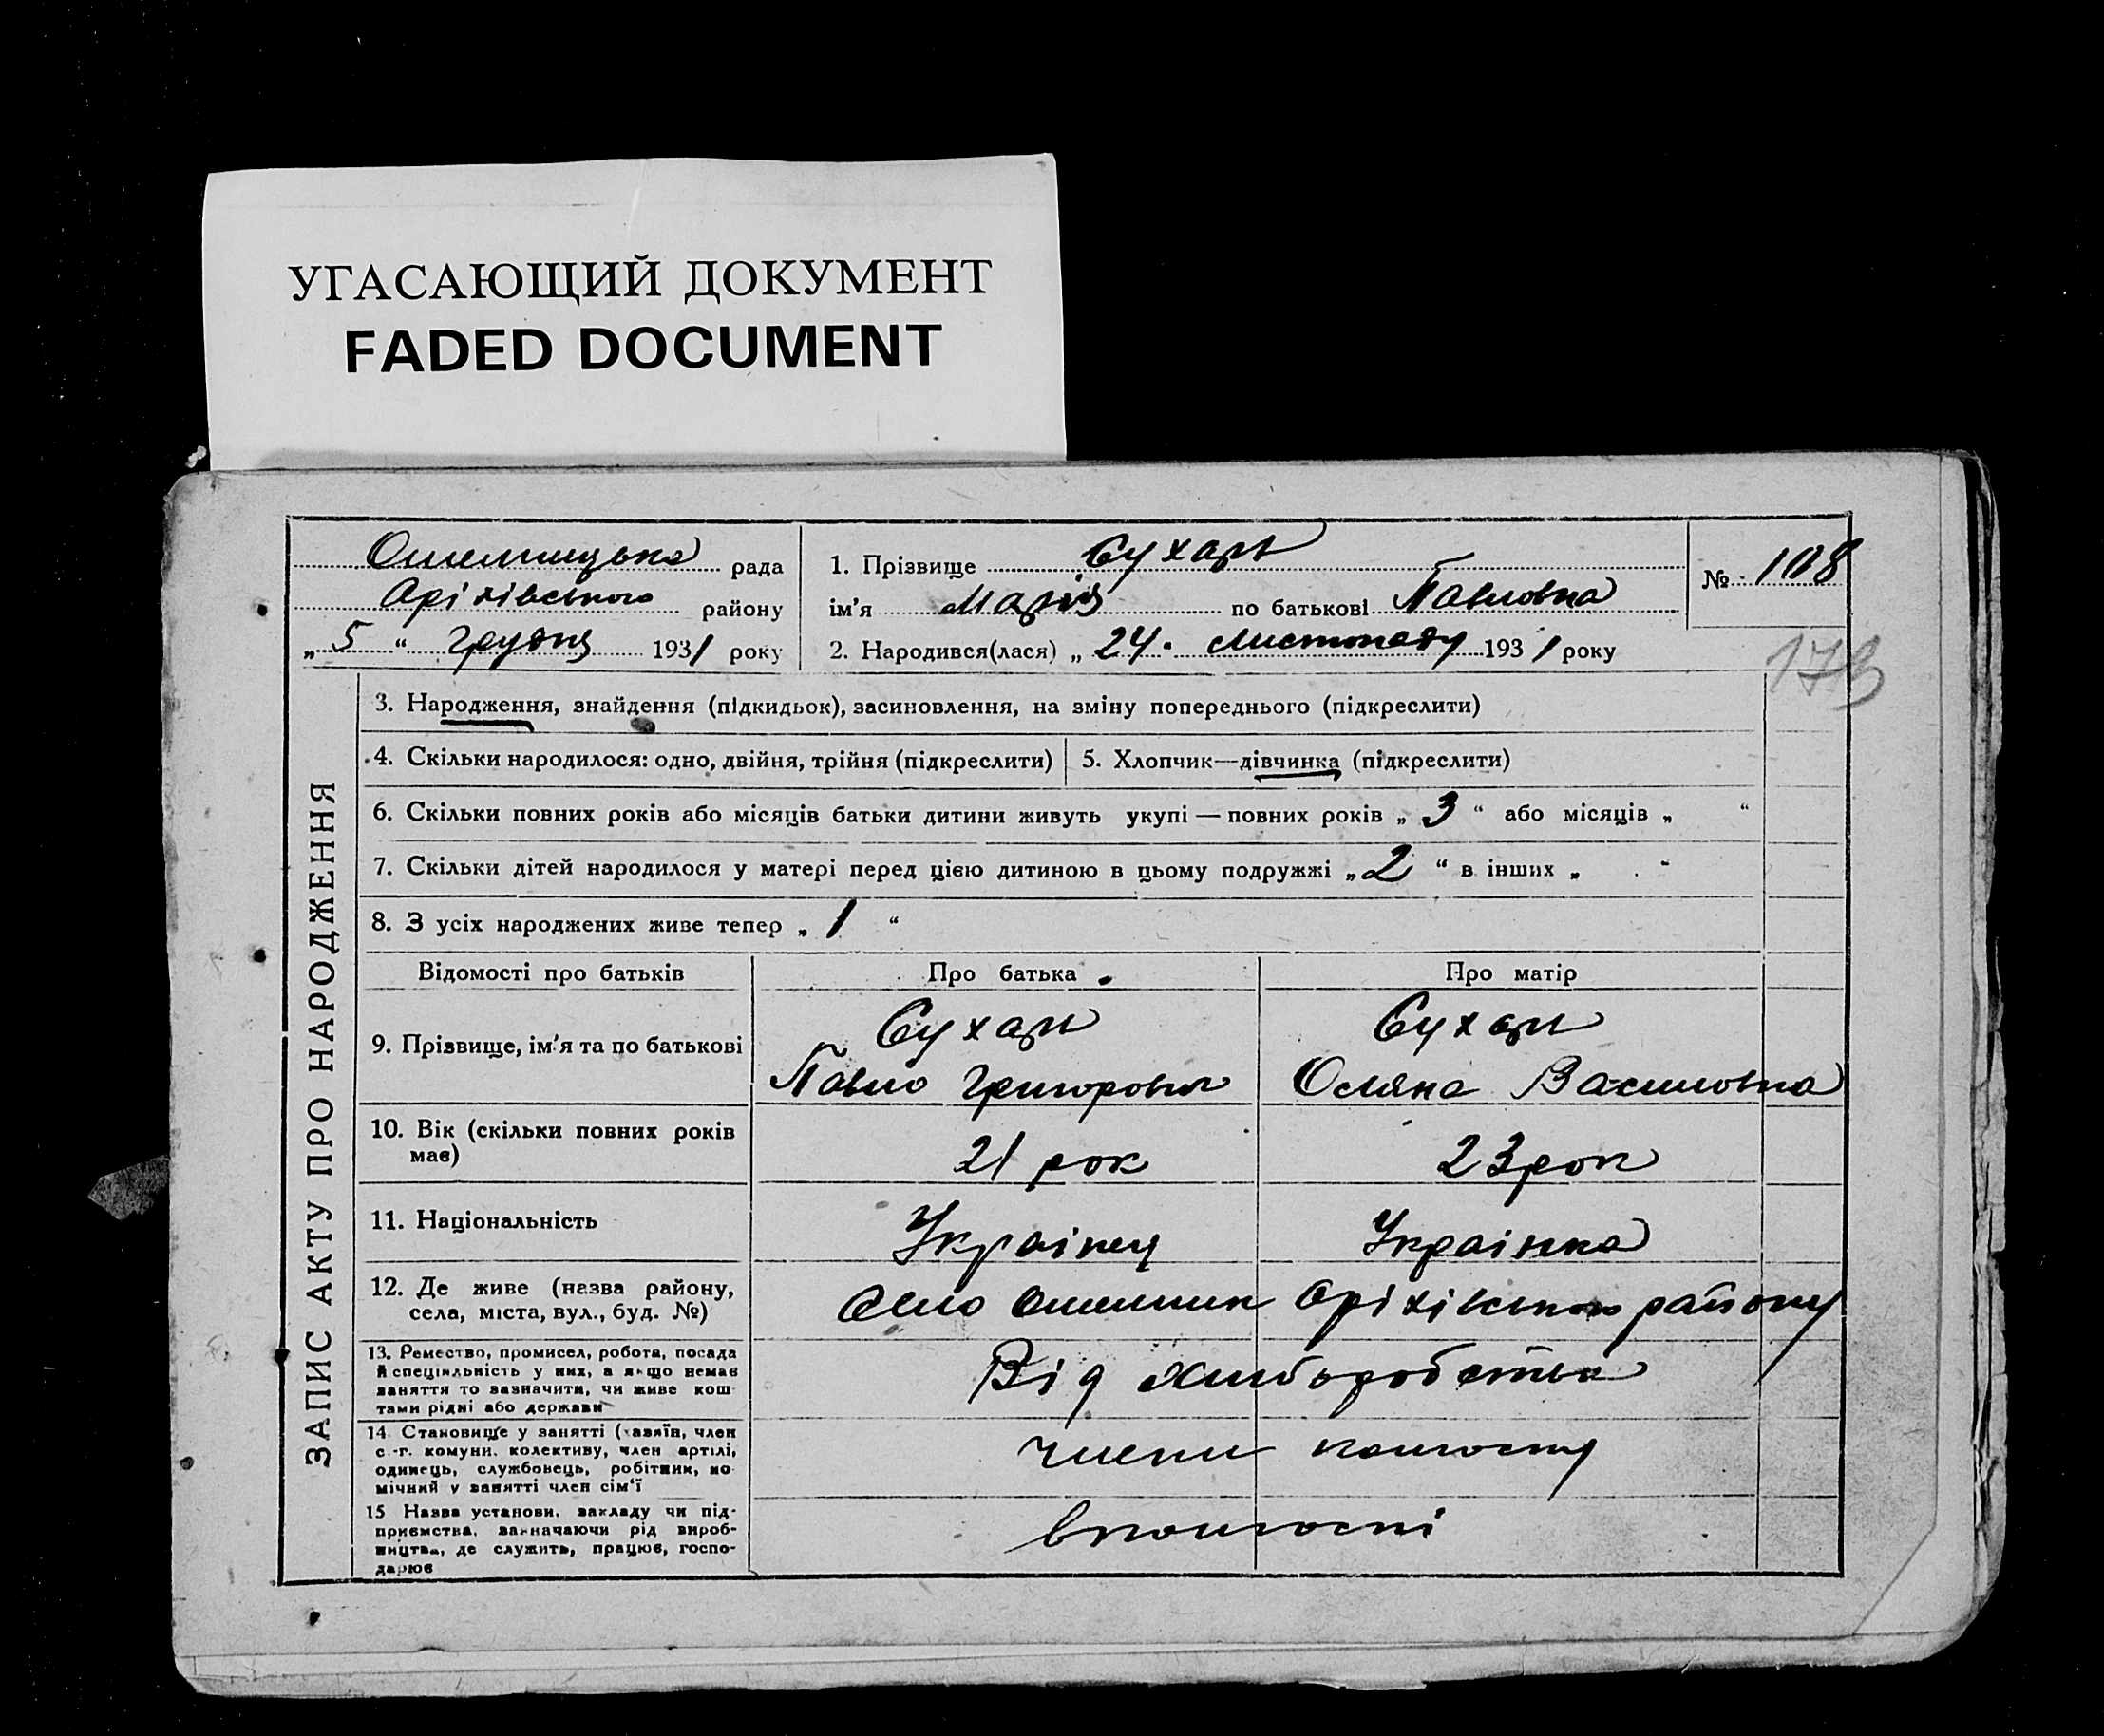 УГАСАЮЩИЙ ДОКУМЕНТ
FADED DOCUMENT
рада
Оріхівського району
„ 5 “ грудня 1931 року
1. Прізвище Сухарь
ім'я Марія по батькові Павловна
2. Народився(лася) „ 24. листопаду 1931 року
№ 108
173
ЗАПИС АКТУ ПРО НАРОДЖЕННЯ
3. Народження, знайдення (підкидьок), засиновлення, на зміну попереднього (підкреслити)
4. Скільки народилося: одно, двійня, трійня (підкреслити)
5. Хлопчик—дівчинка (підкреслити)
6. Скільки повних років або місяців батьки дитини живуть укупі — повних років „ 3 “ або місяців „ “
7. Скільки дітей народилося у матері перед цією дитиною в цьому подружжі „ 2 “ в інших „ “
8. З усіх народжених живе тепер „ 1 “
Відомості про батьків
Про батька
Про матір
9. Прізвище, ім'я та по батькові
Сухарь
Павло Григорович
Сухарь
Оляна Василовна
10. Вік (скільки повних років
має)
21 рок
23 рок
11. Національність
Українец
Українка
12. Де живе (назва району,
села, міста, вул., буд. №)
Село Оріхівського району
13. Ремество, промисел, робота, посада
й спеціяльність у них, а якщо немає
заняття то зазначити, чи живе кош-
тами рідні або держави
Від хліборобства
14. Становище у занятті (хазяїн, член
с.-г. комуни, колективу, член артілі,
одинець, службовець, робітник, по-
мічний у занятті член сім'ї
члени колгоспу
15 Назва установи, закладу чи під-
приємства, зазначаючи рід вироб-
ництва, де служить, працює, госпо-
дарює
в колгоспі